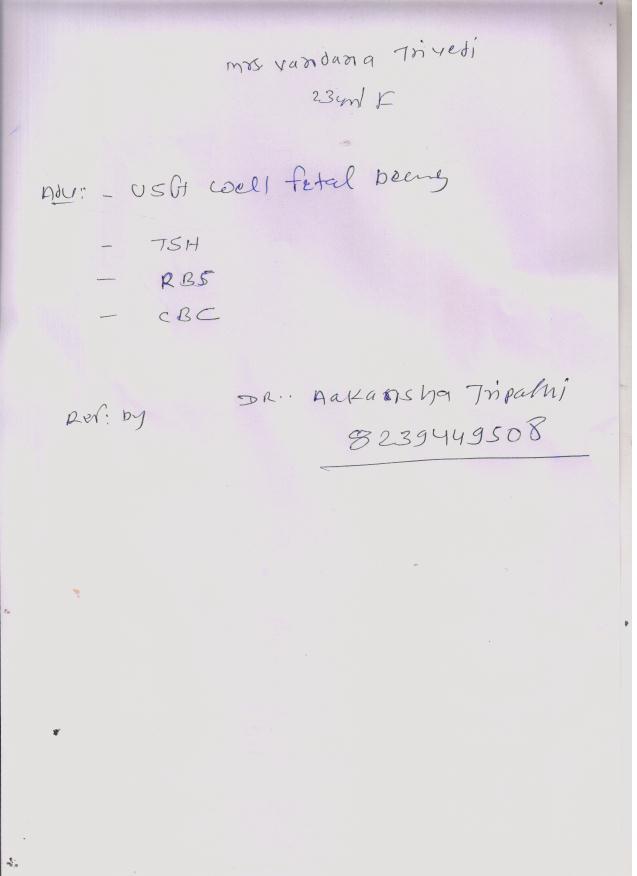 mrs vandana Trivedi
23yr/ F
Adv: - USG well fetal being
- TSH
- RBS
- CBC
Ref: by DR.. Aakansha Tripathi
8239449508